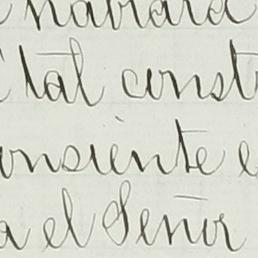 habrá
tal const
onsiente e
a el Señor